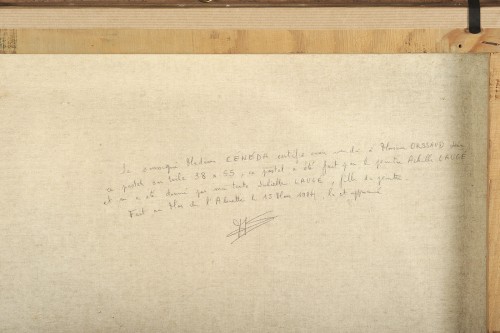 Je soussigné Madame CENEDA certifie avoir vendu à Monsieur DASSAUD
ce pastel sur toile 38 x 53, ce pastel a été fait par le peintre Achille LAUGÉ
et m'a été donné par ma tante Juliette LAUGÉ, fille du peintre
Fait au Mas de l'Alouette le 13 Mars 1984 lu et approuvé